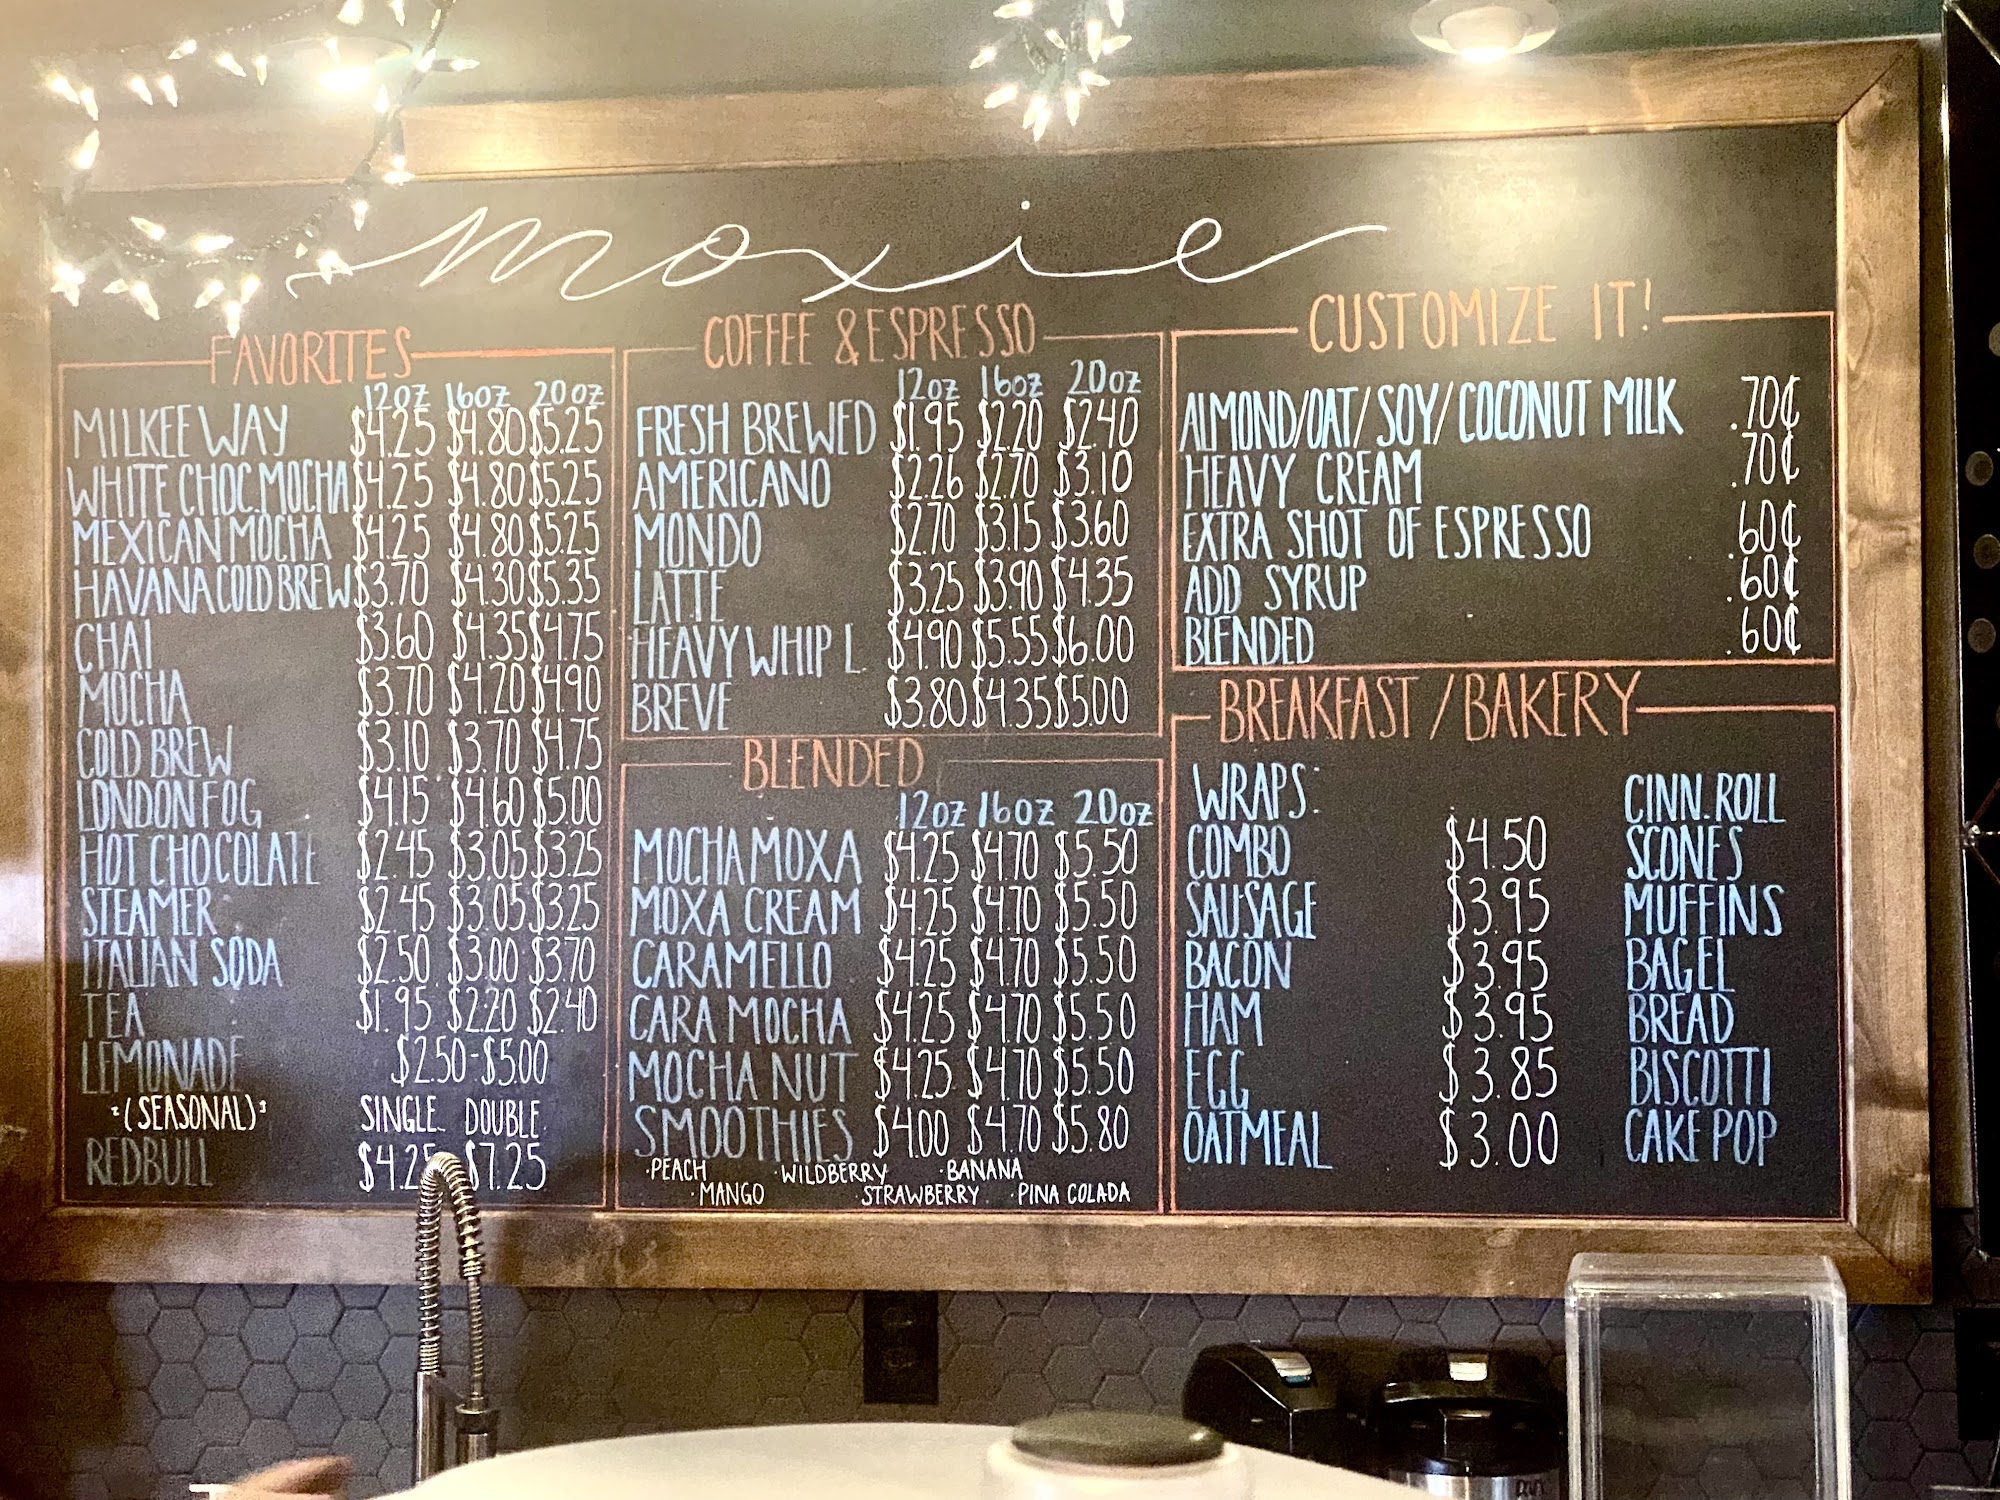 moxie
FAVORITES
12oz 16oz 20oz
MILKEE WAY $4.25 $4.80 $5.25
WHITE CHOC. MOCHA $4.25 $4.80 $5.25
MEXICAN MOCHA $4.25 $4.80 $5.25
HAVANA COLD BREW $3.70 $4.30 $5.35
CHAI $3.60 $4.35 $4.75
MOCHA $3.70 $4.20 $4.90
COLD BREW $3.10 $3.70 $4.75
LONDON FOG $4.15 $4.60 $5.00
HOT CHOCOLATE $2.45 $3.05 $3.25
STEAMER $2.45 $3.05 $3.25
ITALIAN SODA $2.50 $3.00 $3.70
TEA $1.95 $2.20 $2.40
LEMONADE $2.50-$5.00
(SEASONAL) SINGLE DOUBLE
REDBULL $4.25 $7.25
COFFEE & ESPRESSO
12oz 16oz 20oz
FRESH BREWED $1.95 $2.20 $2.40
AMERICANO $2.26 $2.70 $3.10
MONDO $2.70 $3.15 $3.60
LATTE $3.25 $3.90 $4.35
HEAVY WHIP L. $4.90 $5.55 $6.00
BREVE $3.80 $4.35 $5.00
BLENDED
12oz 16oz 20oz
MOCHA MOXA $4.25 $4.70 $5.50
MOXA CREAM $4.25 $4.70 $5.50
CARAMELLO $4.25 $4.70 $5.50
CARA MOCHA $4.25 $4.70 $5.50
MOCHA NUT $4.25 $4.70 $5.50
SMOOTHIES $4.00 $4.70 $5.80
·PEACH ·WILDBERRY ·BANANA
·MANGO ·STRAWBERRY ·PINA COLADA
CUSTOMIZE IT!
ALMOND/OAT/SOY/COCONUT MILK .70¢
HEAVY CREAM .70¢
EXTRA SHOT OF ESPRESSO .60¢
ADD SYRUP .60¢
BLENDED .60¢
BREAKFAST / BAKERY
WRAPS: CINN. ROLL
COMBO $4.50 SCONES
SAUSAGE $3.95 MUFFINS
BACON $3.95 BAGEL
HAM $3.95 BREAD
EGG $3.85 BISCOTTI
OATMEAL $3.00 CAKE POP